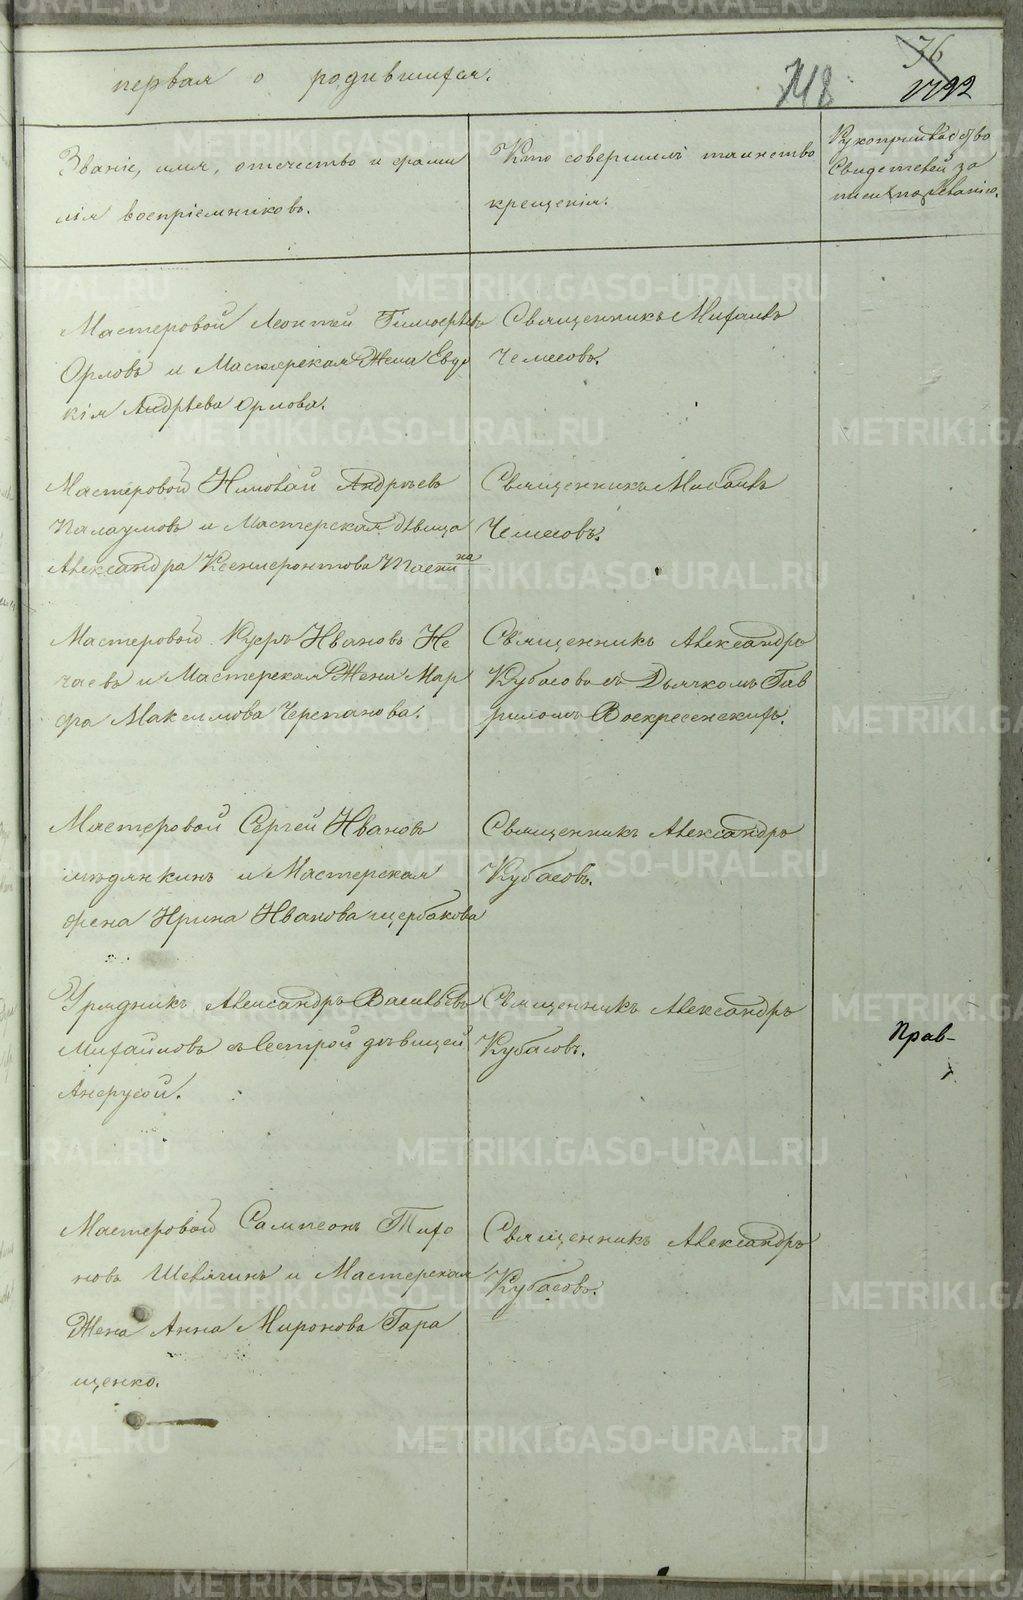 первая о родившихся.
718
36
1792
Званіе, имя, отечество и фами
лія воспріемниковъ.
Кто совершилъ таинство
крещенія.
Рукоприкладство
Свидетелей за
писи по желанію.
Мастеровой Леонтей Тимофеевъ
Орловъ и Мастерская Жена Евдо
кія Андрѣева Орлова.
Священникъ Михаилъ
Чемесовъ.
Мастеровой Николай Андрѣевъ
и Мастерская дѣвица
Александра Ксенофонтова
Священникъ Михаилъ
Чемесовъ.
Мастеровой Киръ Ивановъ Не
чаевъ и Мастерская Жена Мар
фа Максимова Черепанова.
Священникъ Александръ
Кубасовъ съ Дьячкомъ Гав
риломъ Воскресенскимъ.
Мастеровой Сергей Ивановъ
мѣдянкинъ и Мастерская
жена Ирина Иванова щербакова
Священникъ Александръ
Кубасовъ.
Урядникъ Александръ Васильевъ
Михайловъ съ Сестрой дѣвицей
Анфусой.
Священникъ Александръ
Кубасовъ.
Прав-
Мастеровой Сампсонъ Тихо
новъ Шевягинъ и Мастерская
Жена Анна Миронова Гара
щенко.
Священникъ Александръ
Кубасовъ.
METRIKI.GASO-URAL.RU